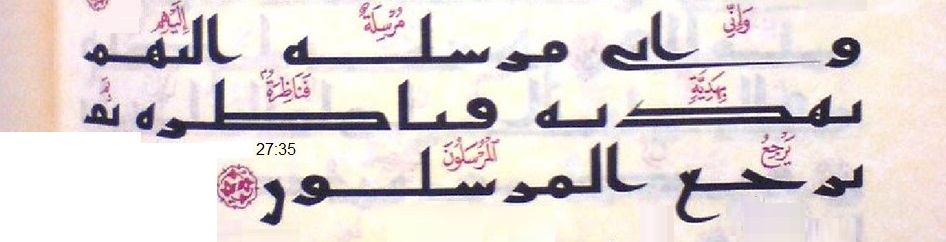 وَإِنِّي مُرْسِلَةٌ إِلَيْهِم
وانى مرسله اليهم
بِهَدِيَّةٍ فَنَاظِرَةٌ بِمَ
بهديه فناظره بم
يَرْجِعُ الْمُرْسَلُونَ 27:35
يرجع المرسلون